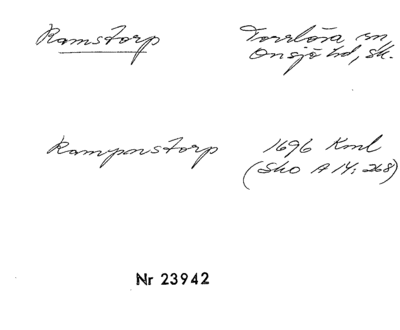 Ramstorp
Torrlösa sn,
Onsjö hd, Sk.
Ramponstorp
1696 Kml
(Sko A 14: 268)
Nr 23942